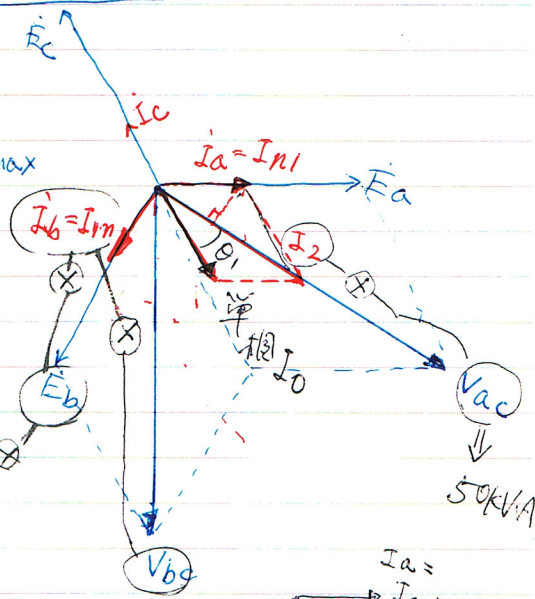 Ėc
İc
max
İa = In1
Ėa
İb = I1n
I2
θ1
単
相
I0
Ėb
Vac
50kVA
Vbc
Ia =